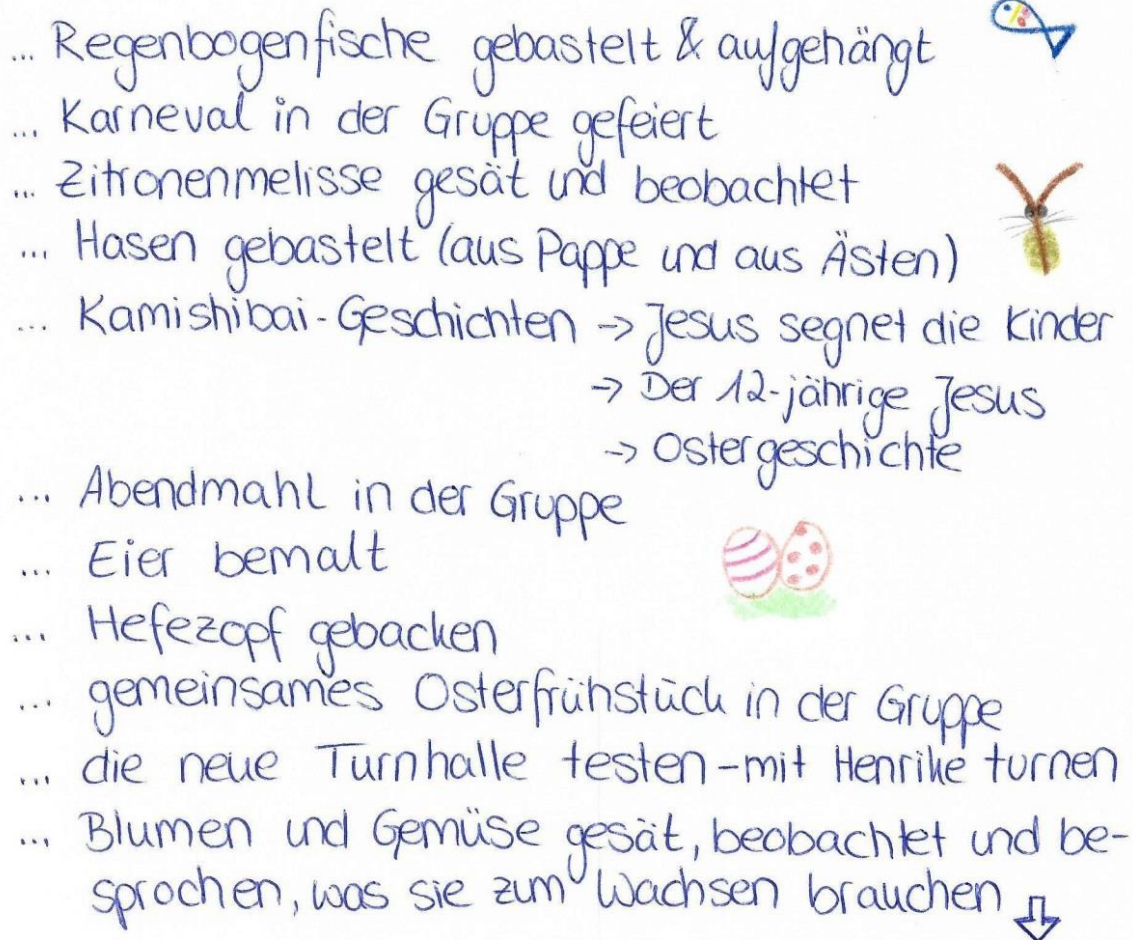 ... Regenbogenfische gebastelt & aufgehängt
... Karneval in der Gruppe gefeiert
... Zitronenmelisse gesät und beobachtet
... Hasen gebastelt (aus Pappe und aus Ästen)
... Kamishibai-Geschichten -> Jesus segnet die Kinder
-> Der 12-jährige Jesus
-> Ostergeschichte
... Abendmahl in der Gruppe
... Eier bemalt
... Hefezopf gebacken
... gemeinsames Osterfrühstück in der Gruppe
... die neue Turnhalle testen - mit Henrike turnen
... Blumen und Gemüse gesät, beobachtet und be-
sprochen, was sie zum Wachsen brauchen ⇩